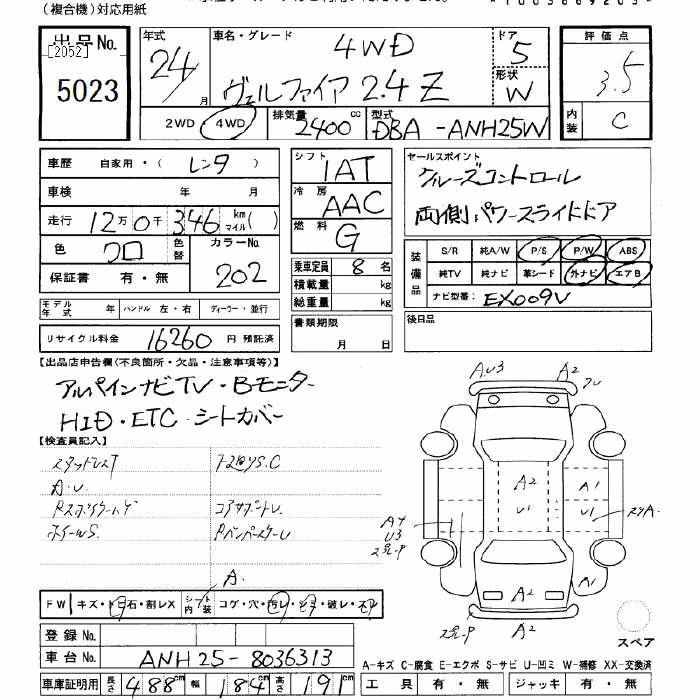 (複合機)対応用紙
出品No.
[2052]
5023
年式
24
月
車名・グレード
4WD
ヴェルファイア 2.4 Z
ドア
5
形状
W
評価点
3.5
内装
C
2WD・4WD
排気量
2400 cc
型式
DBA-ANH25W
車歴 自家用・(レンタ)
車検 年 月
走行 12万0千346 km マイル( )
色 クロ 色替 カラーNo. 202
保証書 有・無
シフト 1AT
冷房 AAC
燃料 G
乗車定員 8名
積載量 kg
総重量 kg
セールスポイント
クルーズコントロール
両側パワースライドドア
装備品
S/R 純A/W P/S P/W ABS
純TV 純ナビ 革シート 外ナビ エアB
ナビ型番: EX009V
モデル年式 年 ハンドル 左・右 ディーラー・並行
リサイクル料金 16260 円 預託済
書類期限
月 日
後日品
【出品店申告欄(不良箇所・欠品・注意事項等)】
アルパインナビTV・Bモニター
HID・ETC・シートカバー
【検査員記入】
A.U.
ホイールS
A.
FW キズ・トビ石・割レX
シート内装 コゲ・穴・汚レ・シミ・破レ・
登録No.
車台No. ANH25-8036313
車庫証明用 長さ 488cm 幅 184cm 高さ 191cm
A.U3
A2
A2
U1
A1
U1
A4
U3
A1
A2
スペア
A-キズ C-腐食 E-エクボ S-サビ U-凹ミ W-補修 XX-交換済
工具 有・無 ジャッキ 有・無